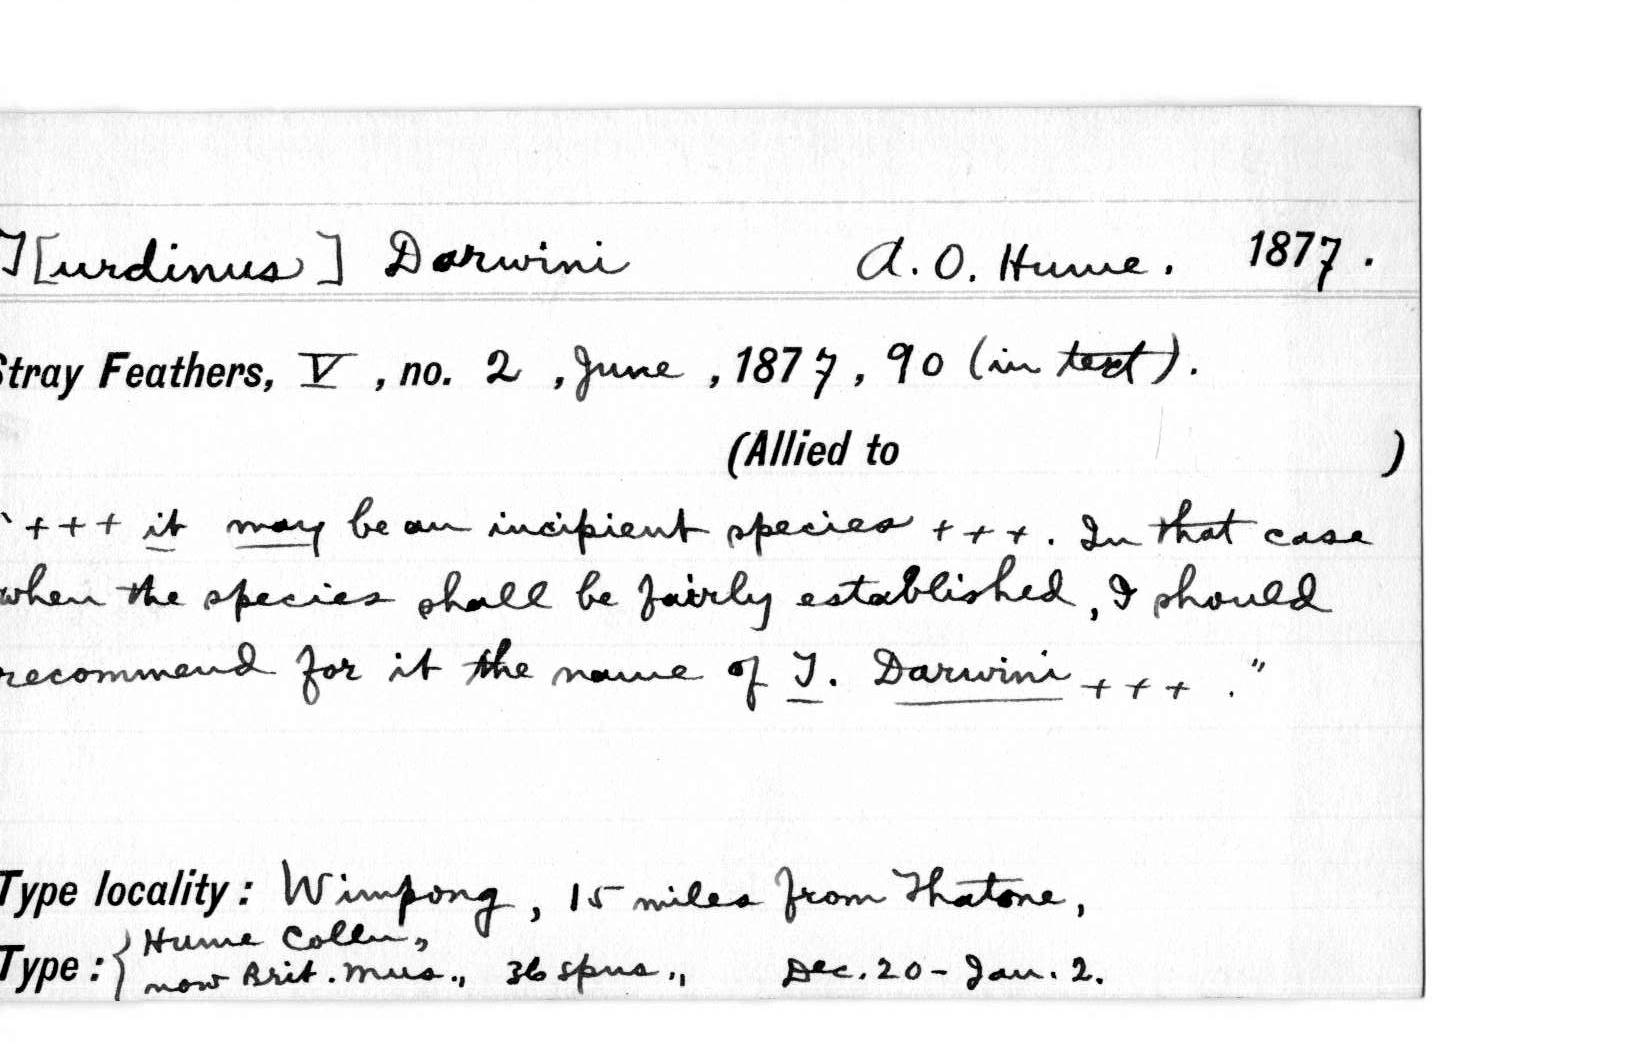 T[urdinus] Darwini A. O. Hume. 1877.
Stray Feathers, V, no. 2, June, 1877, 90 (in text).
(Allied to )
" + + + it may be an incipient species + + +. In that case
when the species shall be fairly established, I should
recommend for it the name of T. Darwini + + + ."
Type locality: Wimpong, 15 miles from Thatone,
Hume Colln.,
Type: { now Brit. Mus., 36 spns., Dec. 20 - Jan. 2.